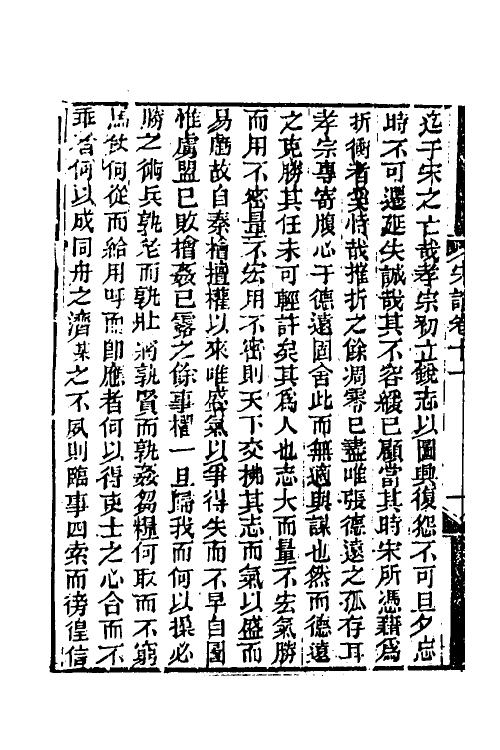 迄于宋之亡哉孝宗初立銳志以圖興復怨不可旦夕忘
時不可遷延失誠哉其不容緩已顧當其時宋所憑藉爲
折衝者奚恃哉摧折之餘凋零已盡唯張德遠之孤存耳
孝宗專寄腹心于德遠固舍此而無適與謀也然而德遠
之克勝其任未可輕許矣其爲人也志大而量不宏氣勝
而用不密量不宏用不密則天下交拂其志而氣以盛而
易虧故自秦檜擅權以來唯盛氣以爭得失而不早自圖
惟虜盟已敗檜姦已露之餘事權一旦歸我而何以操必
勝之術兵孰老而孰壯將孰賢而孰姦芻糧何取而不窮
馬仗何從而給用呼而卽應者何以得吏士之心合而不
乖者何以成同舟之濟謀之不夙則臨事四索而徬徨信
宋論卷十一